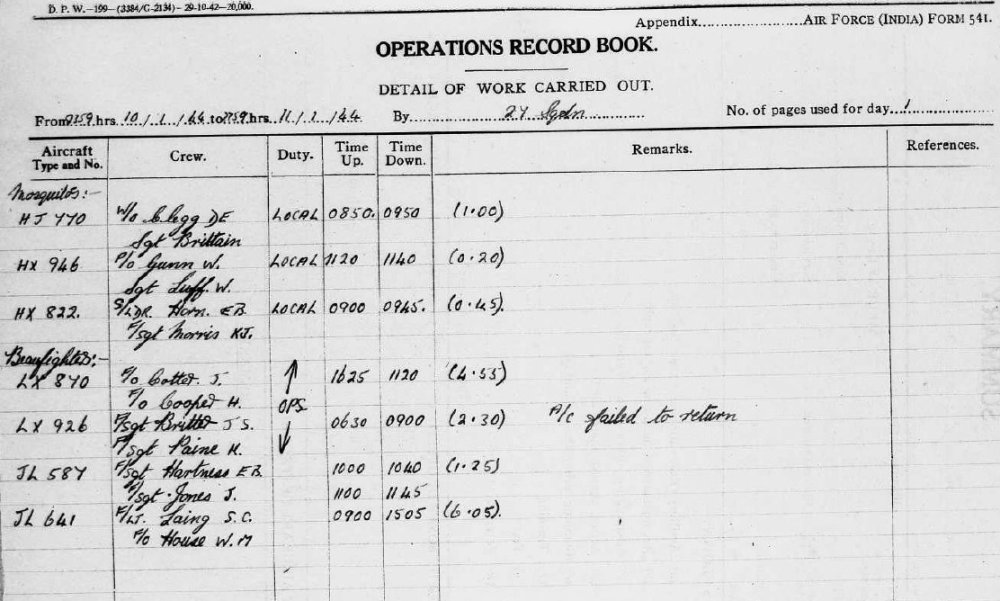 D. P. W.—199—(3384/C-2134)—29-10-42—20,000.
Appendix.....................AIR FORCE (INDIA) FORM 541.
OPERATIONS RECORD BOOK.
DETAIL OF WORK CARRIED OUT.
From 0759 hrs. 10 / 1 / 44 to 0759 hrs. 11 / 1 / 44 By 27 Sqdn No. of pages used for day. 1
Aircraft Type and No. Crew. Duty. Time Up. Time Down. Remarks. References.
Mosquitos:-
HJ 770 W/O Clegg DE LOCAL 0850. 0950 (1.00)
Sgt Brittain
HX 946 P/O Gunn W. LOCAL 1120 1140 (0.20)
Sgt Luff. W.
HX 822. S/LDR. Horn. EB LOCAL 0900 0945. (0.45).
F/Sgt Morris KJ.
Beaufighters:-
LX 870 Cotter. J. 1625 1120 (4.55)
F/O Cooper H. OPS
LX 926 F/Sgt Britter J S. 0630 0900 (2.30) A/c failed to return
F/Sgt Paine H.
JL 587 F/Sgt Hartness EB. 1000 1040 (1.25)
F/Sgt Jones J. 1100 1145
JL 641 F/LT. Laing S.C. 0900 1505 (6.05).
F/O House W.M